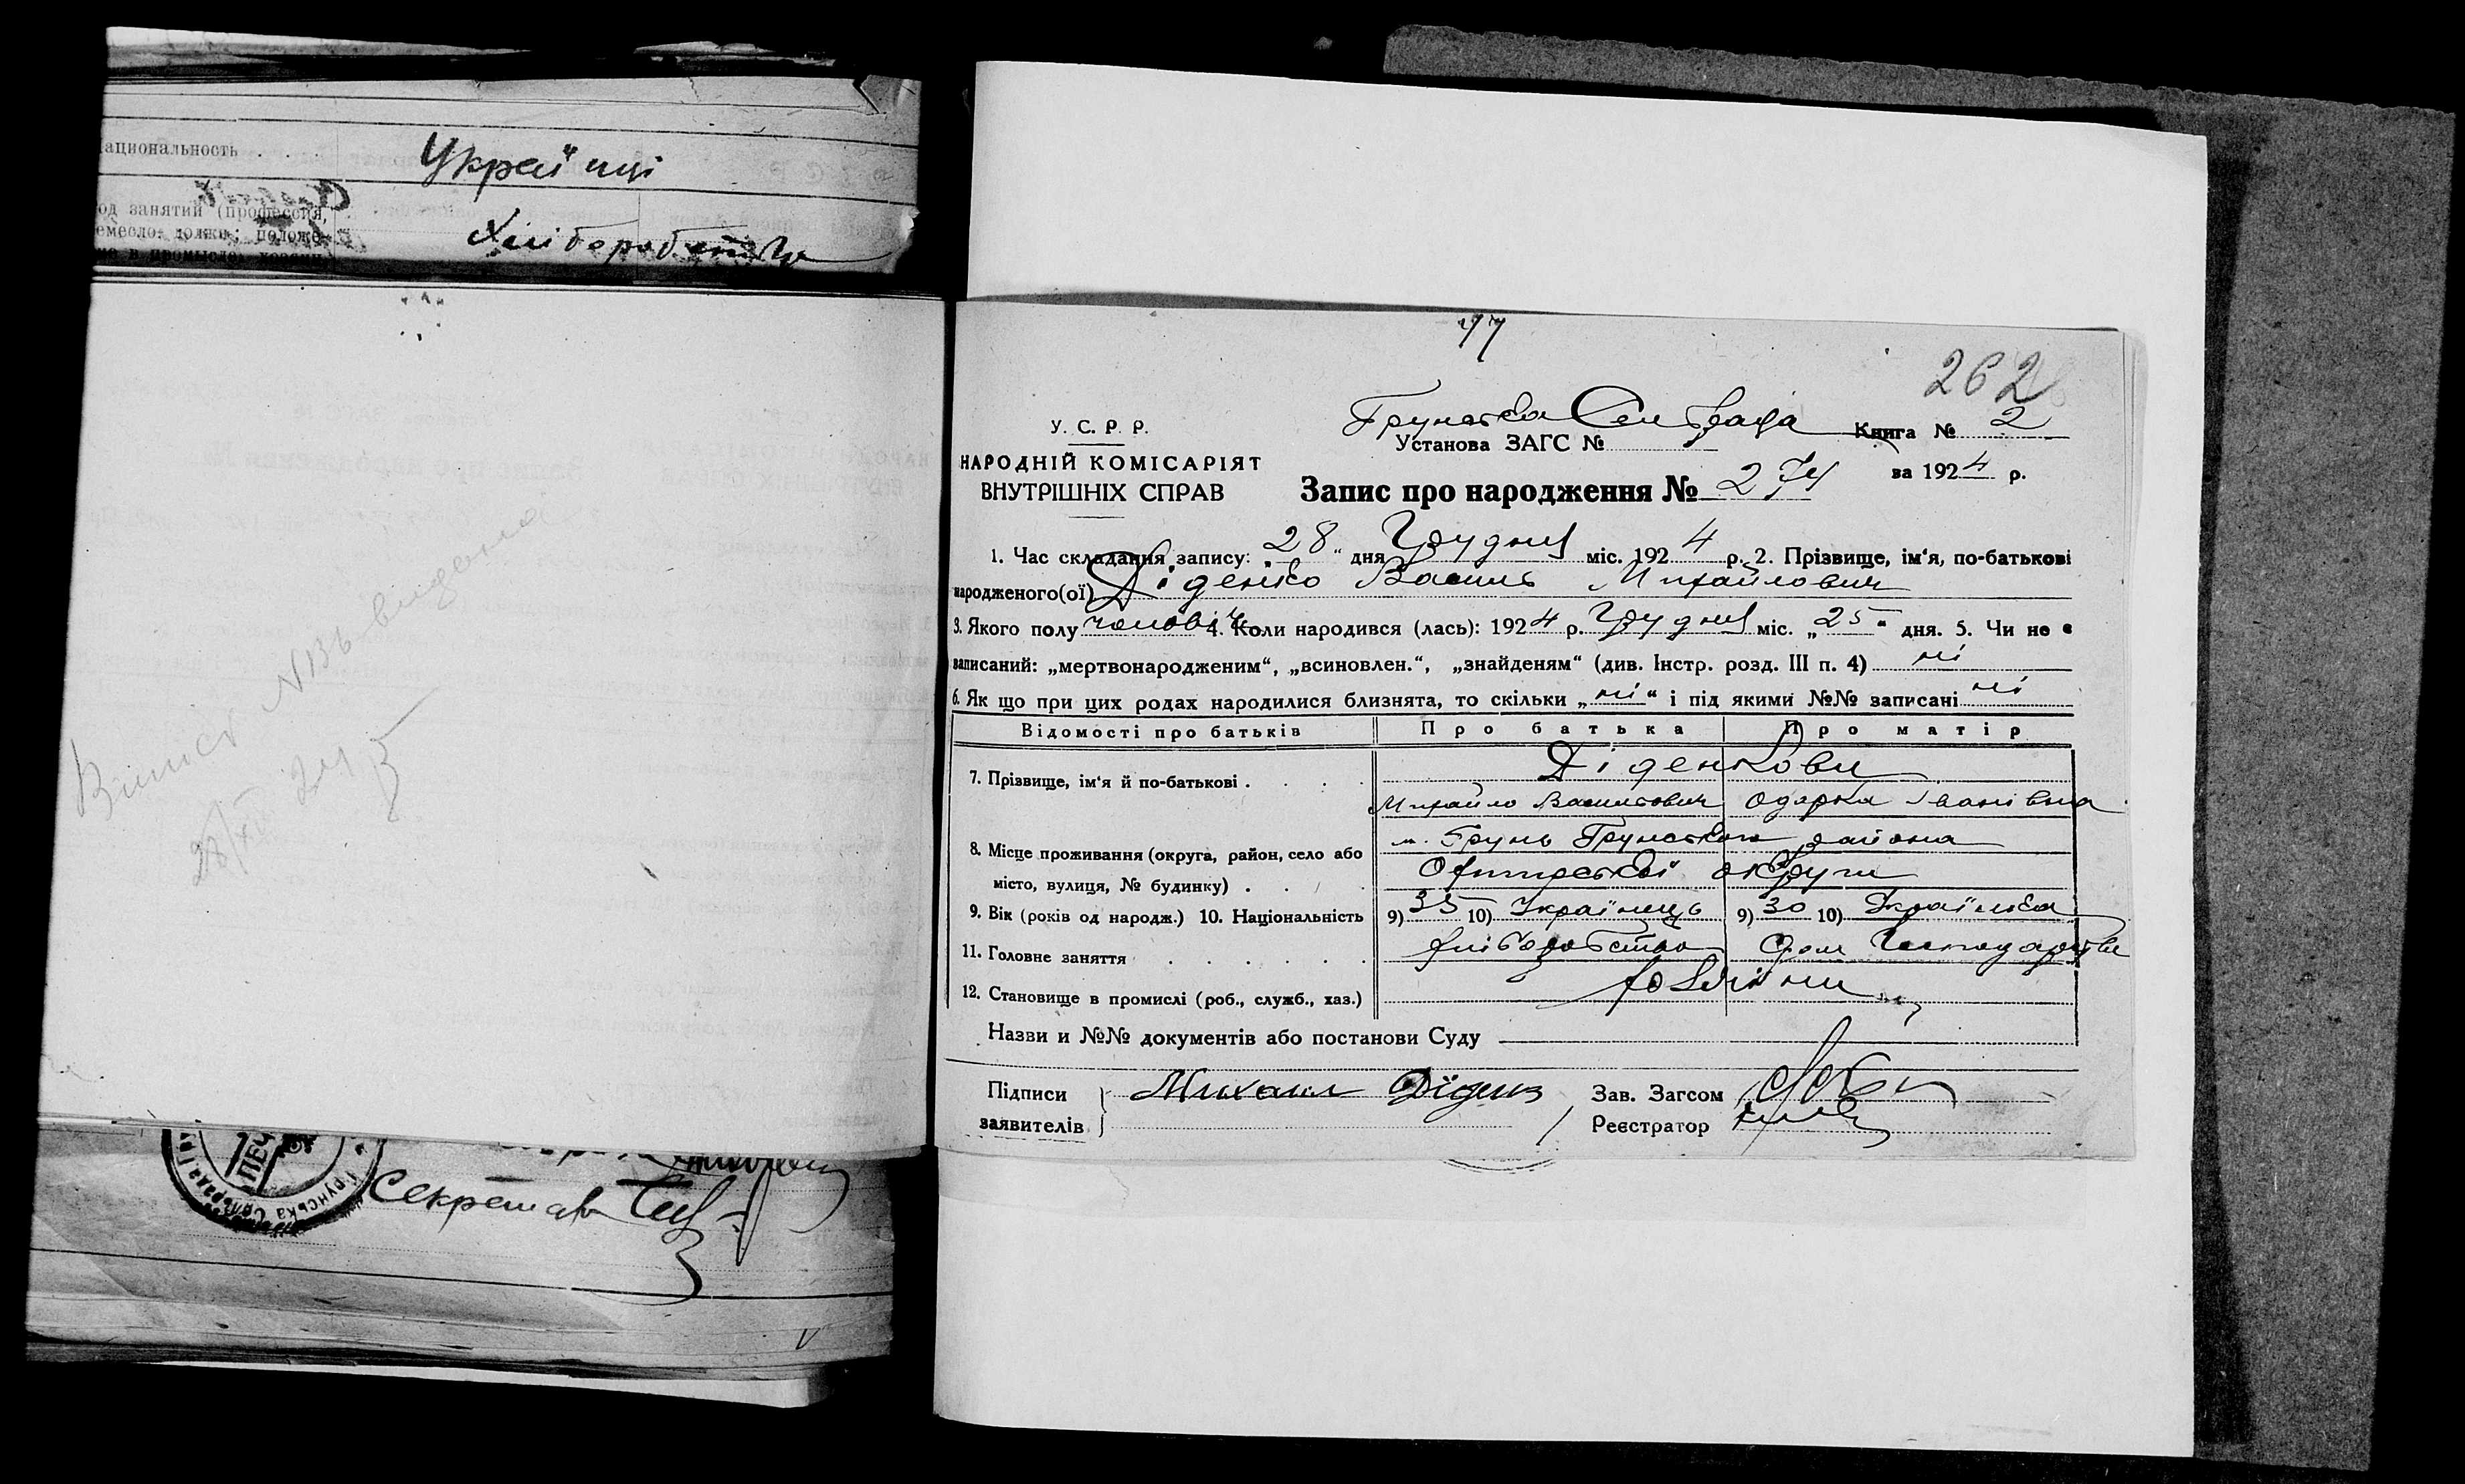 ациональность . . . Україпці
од занятий (профессия,
емесло: должн; положе- Хлібероб
ие в промысле: хозяин
Виписъ N 136 видана
28/XII 24
ПЕЧ
Грунська Сільрада
Секретар
V
77
262
У. С. Р. Р.
НАРОДНІЙ КОМІСАРІЯТ
ВНУТРІШНІХ СПРАВ
Грунська Сельрада
Установа ЗАГС № Книга № 2
за 1924 р.
Запис про народження № 274
1. Час складання запису: „28“ дня Грудня міс. 1924 р. 2. Прізвище, ім‘я, по-батькові
народженого(ої) Діденко Василь Михайлович
3. Якого полу чоловіч 4. Коли народився (лась): 1924 р. Грудня міс. „25“ дня. 5. Чи не є
записаний: „мертвонародженим“, „всиновлен.“, „знайденям“ (див. Інстр. розд. III п. 4) ні
6. Як що при цих родах народилися близнята, то скільки „ні“ і під якими №№ записані ні
Відомості про батьків Про батька Про матір
Діденкови
7. Прізвище, ім‘я й по-батькові . . . .
Михайло Васильович Одарка Іванівна
м. Грунь Грунського района
8. Місце проживання (округа, район, село або
місто, вулиця, № будинку) . . . . Охтирської округи
9. Вік (років од народж.) 10. Національність 9) 35 10) Українець 9) 30 10) Українка
11. Головне заняття . . . . . . хліборобство Дом Господарстві
12. Становище в промислі (роб., служб., хаз.) хозяїни
Назви и №№ документів або постанови Суду
Підписи Михаил Діденко Зав. Загсом
заявителів Реєстратор